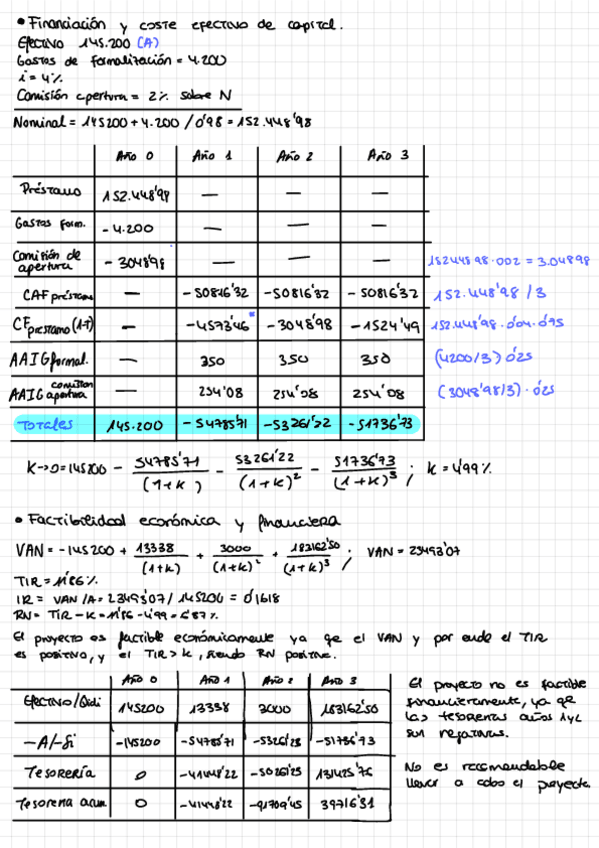 • Financiación y coste efectivo de capital.
Efectivo 145.200 (A)
Gastos de formalización = 4.200
i = 4%
Comisión apertura = 2% sobre N
Nominal = 145200 + 4.200 / 0'98 = 152.448'98
Año 0 Año 1 Año 2 Año 3
Préstamo 152.448'98 — — —
Gastos form. - 4.200 — — —
Comisión de apertura - 3048'98 — — — 152448'98·0'02 = 3.048'98
CAF préstamo — - 50816'32 - 50816'32 - 50816'32 152.448'98 / 3
CF préstamo (1-T) — - 4573'46 - 3048'98 - 1524'49 152.448'98·0'04·0'75
AAIG formal. — 350 350 350 (4200/3) 0'25
AAIG comisión apertura — 254'08 254'08 254'08 (3048'98/3)·0'25
Totales 145.200 - 54785'71 - 53261'22 - 51736'73
K → 0 = 145200 - 54785'71 / (1+K) - 53261'22 / (1+K)² - 51736'73 / (1+K)³ ; K = 4'99%
• Factibilidad económica y financiera
VAN = - 145200 + 13338 / (1+K) + 3000 / (1+K)² + 183162'50 / (1+K)³ ; VAN = 23493'07
TIR = 11'86%
IR = VAN /A = 23493'07 / 145200 = 0'1618
RN = TIR - K = 11'86 - 4'99 = 6'87%
El proyecto es factible económicamente ya qe el VAN y por ende el TIR
es positivo, y el TIR > K, siendo RN positive.
Año 0 Año 1 Año 2 Año 3
Efectivo/Qidi 145200 13338 3000 183162'50
-A/-Si -145200 -54785'71 -53261'23 -51736'73
Tesorería 0 -41448'22 -50261'23 131425'76
Tesorería acum. 0 -41448'22 -91709'45 39716'31
El proyecto no es factible
financieramente, ya qe
las tesorerías años 1 y 2
son negativas.
No es recomendable
llevar a cabo el proyecto.